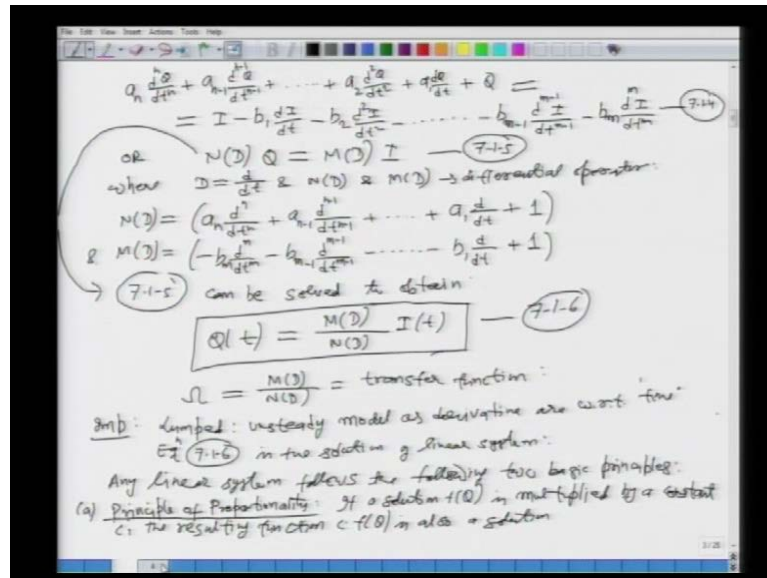 File Edit View Insert Actions Tools Help
a_n d^nQ/dt^n + a_{n-1} d^{n-1}Q/dt^{n-1} + ...... + a_2 d^2Q/dt^2 + a_1 dQ/dt + Q =
= I - b_1 dI/dt - b_2 d^2I/dt^2 - ........ - b_{m-1} d^{m-1}I/dt^{m-1} - b_m d^mI/dt^m — 7.1.4
OR N(D) Q = M(D) I — 7-1-5
where D = d/dt & N(D) & M(D) → differential operator:
N(D) = (a_n d^n/dt^n + a_{n-1} d^{n-1}/dt^{n-1} + ..... + a_1 d/dt + 1)
& M(D) = (-b_m d^m/dt^m - b_{m-1} d^{m-1}/dt^{m-1} - ...... - b_1 d/dt + 1)
→ 7-1-5 can be solved to obtain
Q(t) = M(D)/N(D) I(t) — 7-1-6
Ω = M(D)/N(D) = transfer function:
Imb: Lumped: unsteady model as derivative are w.r.t. "time"
Eq^n 7-1-6 in the solution of linear system:
Any linear system follows the following two basic principles:
(a) Principle of Proportionality: If a solution f(Q) is multiplied by a constant
c, the resulting function c f(Q) is also a solution
3/25